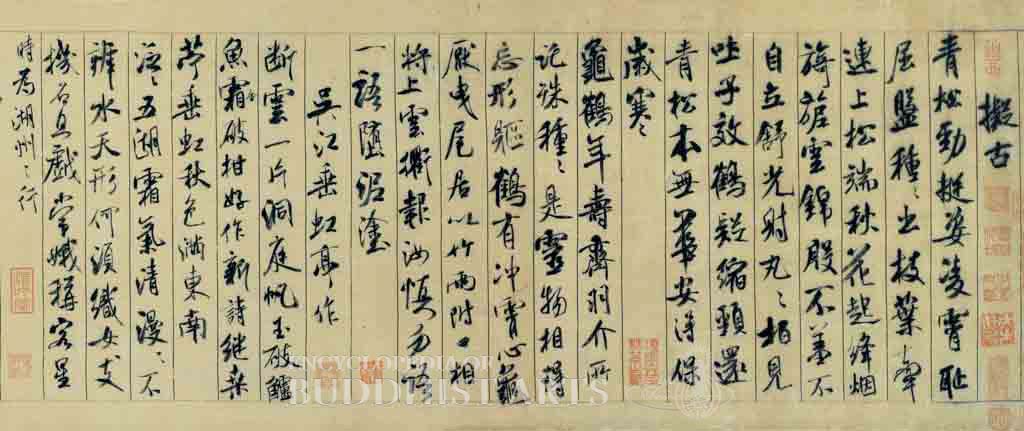 擬古
青松勁挺姿凌霄恥
屈盤種〻出枝葉牽
連上松端秋花起絳烟
旖旎雲錦殷不羞不
自立舒光射丸〻柏見
吐子效鶴疑縮頸還
青松本無華安得保
歲寒〻
龜鶴年壽齊羽介所
託殊種〻是靈物相得
忘形軀鶴有沖霄心龜
厭曳尾居以竹兩附口相
將上雲衢報汝慎勿語
一語墮泥塗
吳江垂虹亭作
斷雲一片洞庭帆玉破鱸
魚霜破柑好作新詩繼桑
苧垂虹秋色滿東南
泛〻五湖霜氣清漫〻不
辨水天形何須織女支
機石且戲常娥稱客星
時為湖州之行
ENCYCLOPEDIA OF
BUDDHIST ARTS